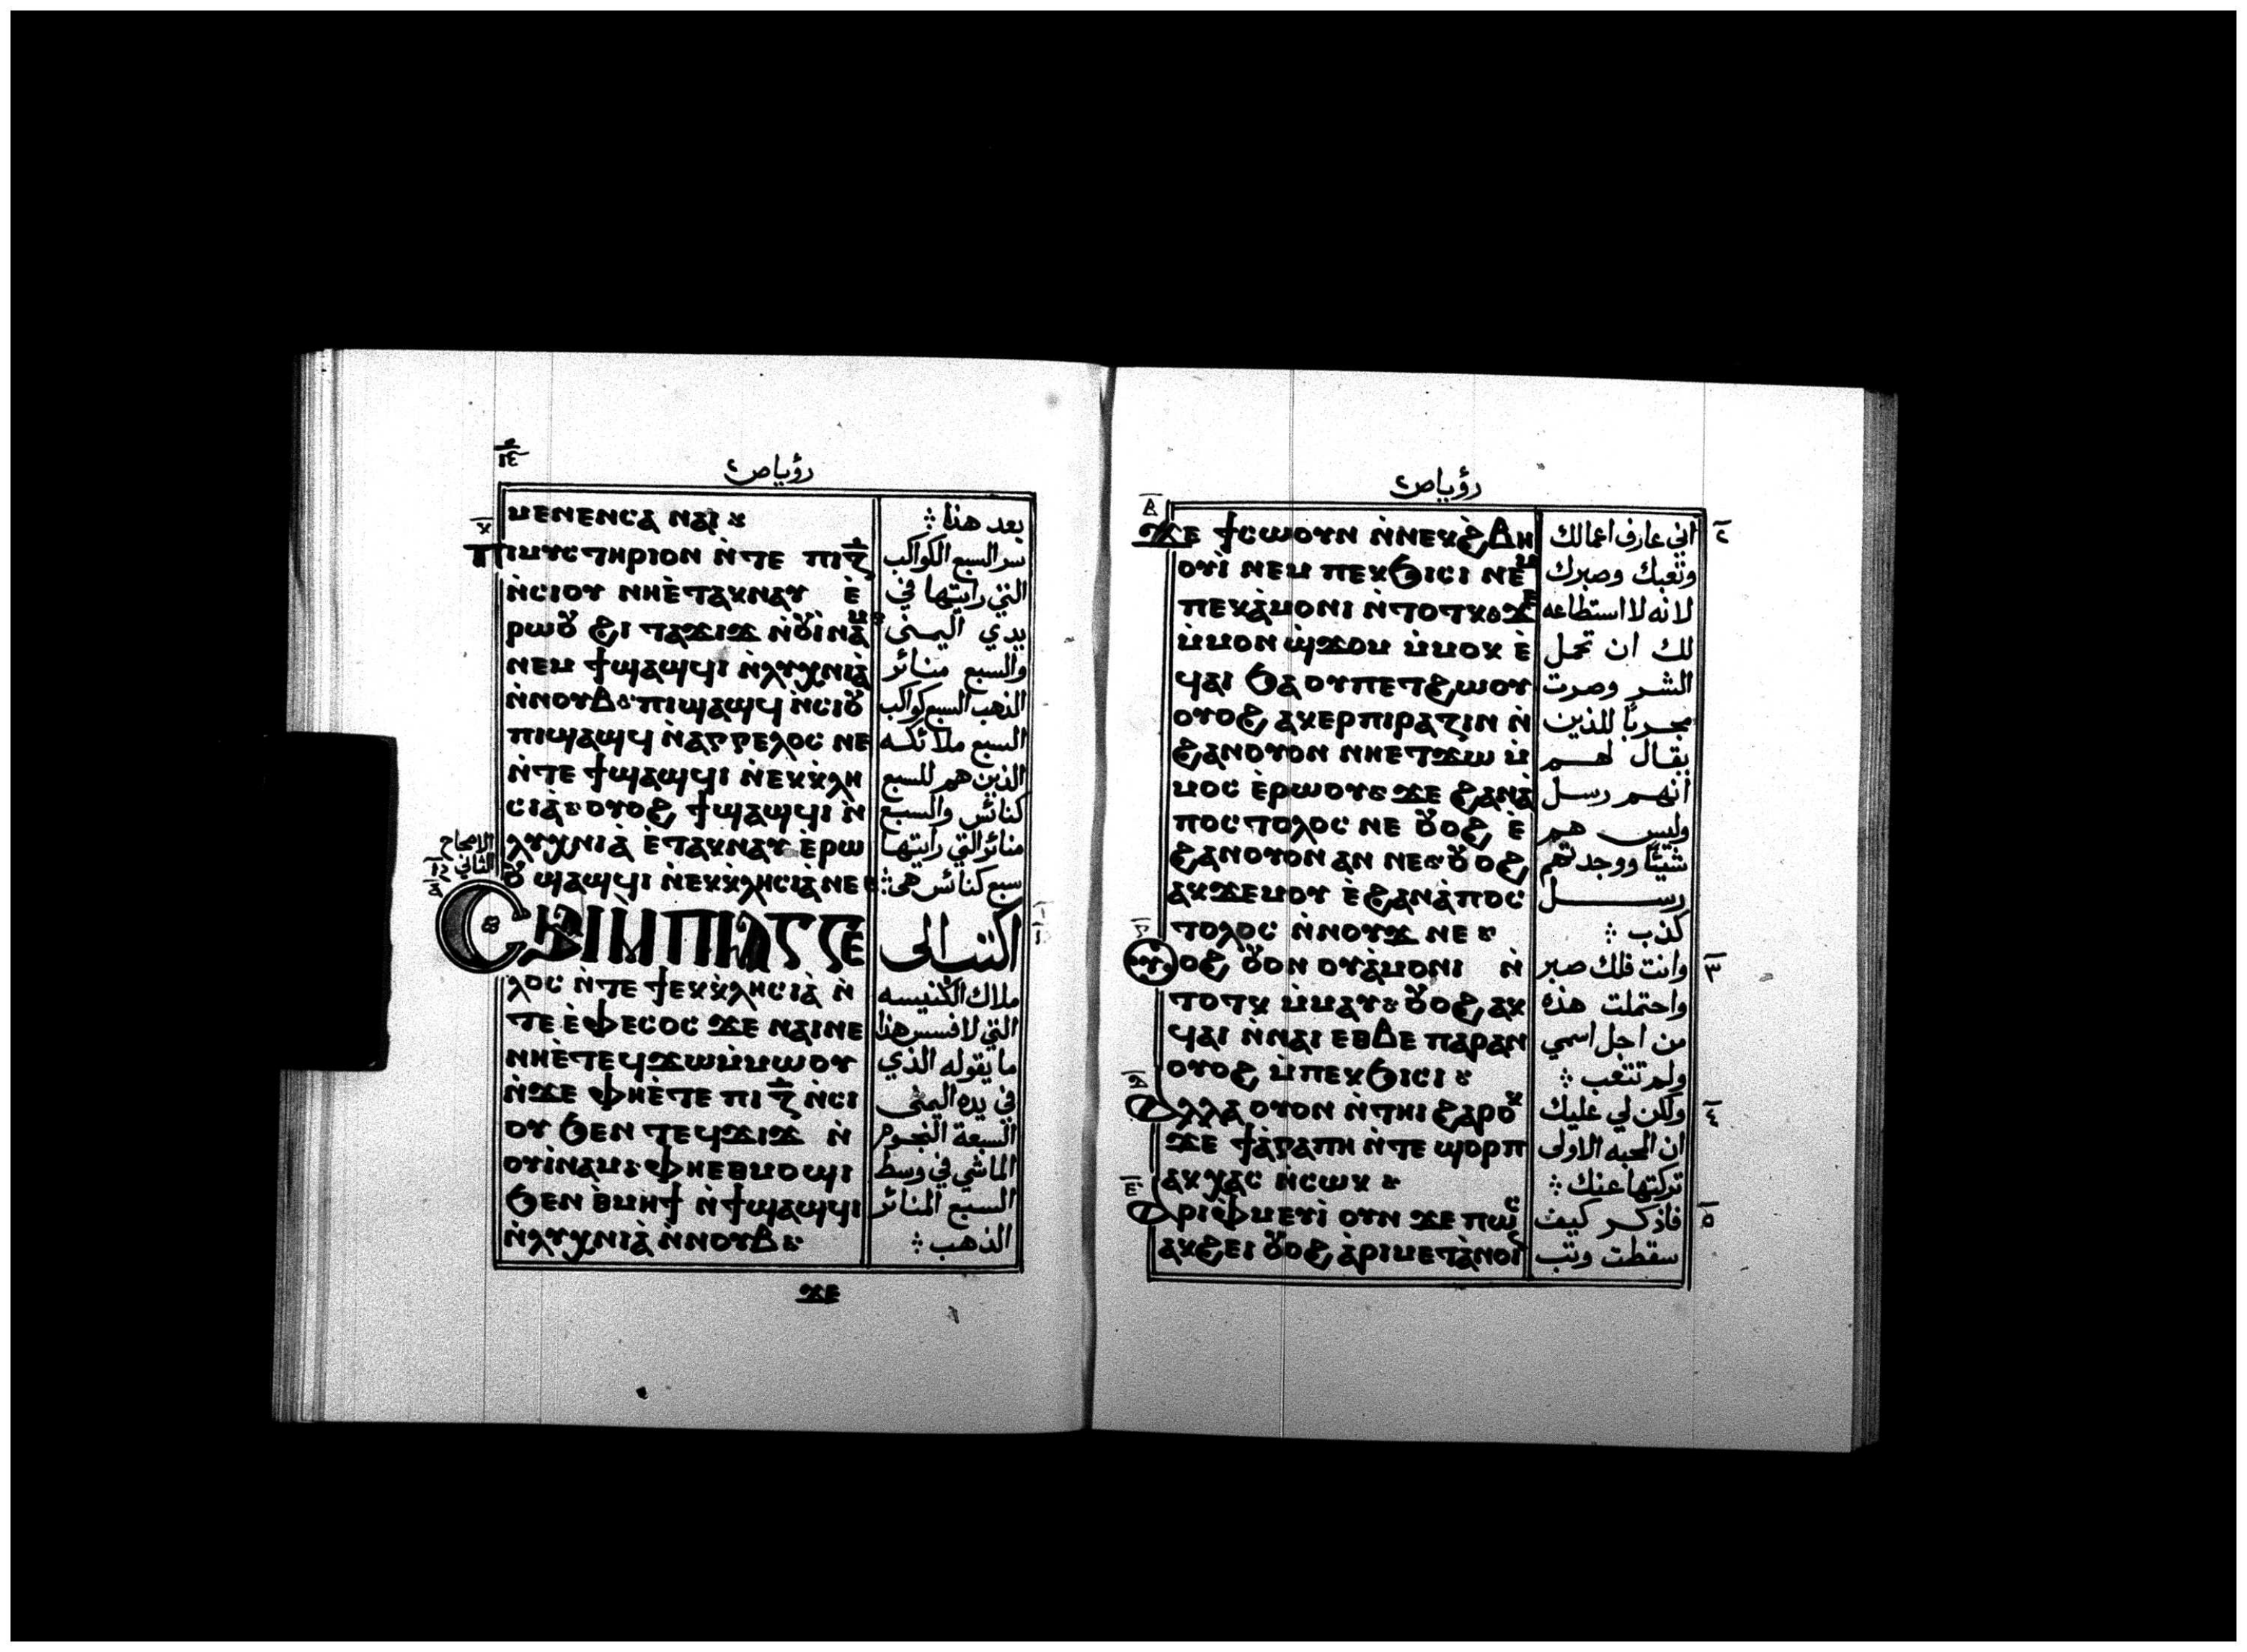 رؤيا ص٢
ⲙⲉⲛⲉⲛⲥⲁ ⲛⲁⲓ
Ⲡⲓⲙⲩⲥⲧⲏⲣⲓⲟⲛ ⲛ̀ⲧⲉ ⲡⲓⲍ̅
ⲛ̀ⲥⲓⲟⲩ ⲛⲏⲉ̀ⲧⲁⲕⲛⲁⲩ ⲉ̀
ⲣⲱⲟⲩ ϩⲓ ⲧⲁϫⲓϫ ⲛ̀ⲟⲩⲓ̀ⲛⲁⲙ
ⲛⲉⲙ ϯϣⲁϣϥⲓ ⲛ̀ⲗⲩⲭⲛⲓⲁ̀
ⲛ̀ⲛⲟⲩⲃ ⲡⲓϣⲁϣϥ ⲛ̀ⲥⲓⲟⲩ
ⲡⲓϣⲁϣϥ ⲛ̀ⲁⲅⲅⲉⲗⲟⲥ ⲛⲉ
ⲛ̀ⲧⲉ ϯϣⲁϣϥⲓ ⲛ̀ⲉⲕⲕ̀ⲗⲏ
ⲥⲓⲁ̀ ⲟⲩⲟϩ ϯϣⲁϣϥⲓ ⲛ̀
ⲗⲩⲭⲛⲓⲁ̀ ⲉ̀ⲧⲁⲕⲛⲁⲩ ⲉ̀ⲣⲱ
ⲟⲩ ϣⲁϣϥⲓ ⲛ̀ⲉⲕⲕⲗⲏⲥⲓⲁ̀ ⲛⲉ
Ⲥϧⲁⲓ ⲙ̀ⲡⲓⲁⲅⲅⲉ
ⲗⲟⲥ ⲛ̀ⲧⲉ ϯⲉⲕⲕ̀ⲗⲏⲥⲓⲁ̀ ⲛ̀
ⲧⲉ ⲉ̀ⲫⲉⲥⲟⲥ ϫⲉ ⲛⲁⲓ ⲛⲉ
ⲛⲏⲉ̀ⲧⲉϥϫⲱⲙ̀ⲙⲱⲟⲩ
ⲛ̀ϫⲉ ⲫⲏⲉ̀ⲧⲉ ⲡⲓⲍ̅ ⲛ̀ⲥⲓ
ⲟⲩ ϧⲉⲛ ⲧⲉϥϫⲓϫ ⲛ̀
ⲟⲩⲓ̀ⲛⲁⲙ ⲫⲏⲉⲑⲙⲟϣⲓ
ϧⲉⲛ ⲑ̀ⲙⲏϯ ⲛ̀ϯϣⲁϣϥⲓ
ⲛ̀ⲗⲩⲭⲛⲓⲁ̀ ⲛ̀ⲛⲟⲩⲃ
ϫⲉ
بعد هذا
سر السبع الكواكب
التي رايتها في
يدي اليمنى
والسبع منائر
الذهب السبع كواكب
السبع ملائكه
الذين هم للسبع
كنائس والسبع
منائر التي رايتها
سبع كنائس هى
الاصحاح
الثاني
اكتب الى
ملاك الكنيسه
التي لافسس هذا
ما يقوله الذي
في يده اليمنى
السبعة النجوم
الماشي في وسط
السبع المنائر
الذهب
رؤيا ص٢
ϫⲉ ϯⲥⲱⲟⲩⲛ ⲛ̀ⲛⲉⲕϩ̀ⲃⲏ
ⲟⲩⲓ̀ ⲛⲉⲙ ⲡⲉⲕϧⲓⲥⲓ ⲛⲉⲙ
ⲡⲉⲕⲁ̀ⲙⲟⲛⲓ ⲛ̀ⲧⲟⲧⲕ ϫⲉ
ⲙ̀ⲙⲟⲛ ϣ̀ϫⲟⲙ ⲙ̀ⲙⲟⲕ ⲉ̀
ϥⲁⲓ ϧⲁ ⲟⲩⲡⲉⲧϩⲱⲟⲩ
ⲟⲩⲟϩ ⲁⲕⲉⲣⲡⲓⲣⲁⲍⲓⲛ ⲛ̀
ϩⲁⲛⲟⲩⲟⲛ ⲛⲏⲉⲧϫⲱ ⲙ̀
ⲙⲟⲥ ⲉ̀ⲣⲱⲟⲩ ϫⲉ ϩⲁⲛⲁ̀
ⲡⲟⲥⲧⲟⲗⲟⲥ ⲛⲉ ⲟⲩⲟϩ ⲉ̀
ϩⲁⲛⲟⲩⲟⲛ ⲁⲛ ⲛⲉ ⲟⲩⲟϩ
ⲁⲕϫⲉⲙⲟⲩ ⲉ̀ϩⲁⲛⲁ̀ⲡⲟⲥ
ⲧⲟⲗⲟⲥ ⲛ̀ⲛⲟⲩϫ ⲛⲉ
Ⲟⲩⲟϩ ⲟⲩⲟⲛ ⲟⲩⲁ̀ⲙⲟⲛⲓ ⲛ̀
ⲧⲟⲧⲕ ⲙ̀ⲙⲁⲩ ⲟⲩⲟϩ ⲁⲕ
ϥⲁⲓ ⲛ̀ⲛⲁⲓ ⲉⲑⲃⲉ ⲡⲁⲣⲁⲛ
ⲟⲩⲟϩ ⲙ̀ⲡⲉⲕϧⲓⲥⲓ
Ⲁⲗⲗⲁ ⲟⲩⲟⲛ ⲛ̀ⲧⲏⲓ ϩⲁⲣⲟⲕ
ϫⲉ ϯⲁ̀ⲅⲁⲡⲏ ⲛ̀ⲧⲉ ϣⲟⲣⲡ
ⲁⲕⲭⲁⲥ ⲛ̀ⲥⲱⲕ
Ⲁⲣⲓⲫ̀ⲙⲉⲩⲓ̀ ⲟⲩⲛ ϫⲉ ⲡⲱⲥ
ⲁⲕϩⲉⲓ ⲟⲩⲟϩ ⲁ̀ⲣⲓⲙⲉⲧⲁ̀ⲛⲟⲓⲛ
٢ اني عارف اعمالك
وتعبك وصبرك
لانه لا استطاعه
لك ان تحمل
الشر وصرت
مجربًا للذين
يقال لهم
أنهم رسل
وليس هم
شيئًا ووجدتهم
رسل
كذب
٣ وانت فلك صبر
واحتملت هذه
من اجل اسمي
ولم تتعب
٤ ولكن لي عليك
ان المحبه الاولى
تركتها عنك
٥ فاذكر كيف
سقطت وتب